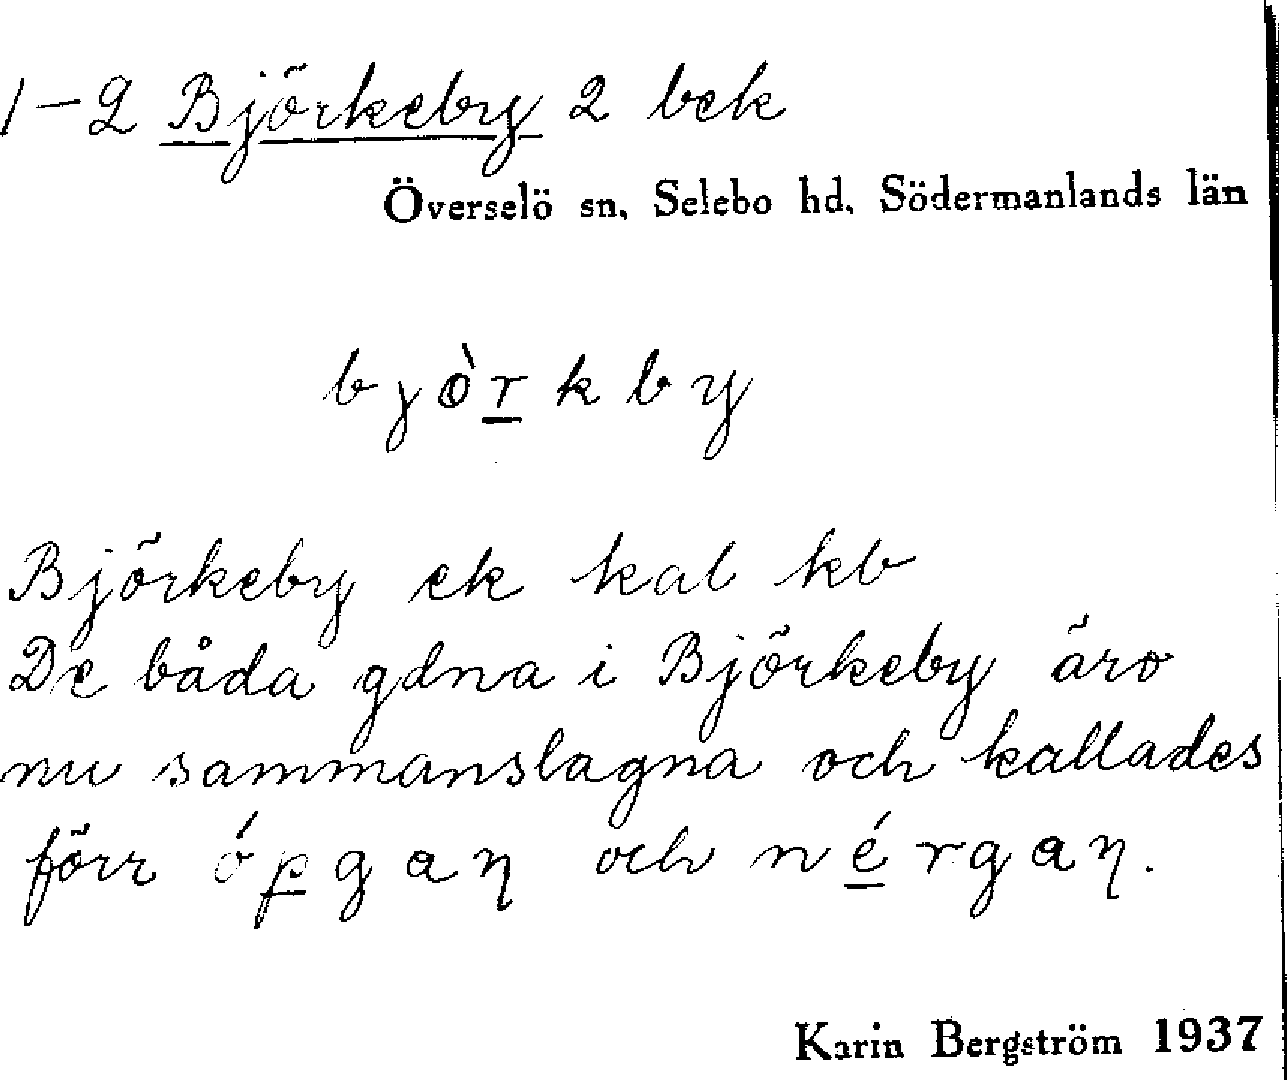 1-2 Björkeby 2 bek
Överselö sn, Selebo hd, Södermanlands län
bjòrkby
Björkeby ek kal kb
De båda gdna i Björkeby äro
nu sammanslagna och kallades
förr ópgaƞ och nérgaƞ.
Karin Bergström 1937